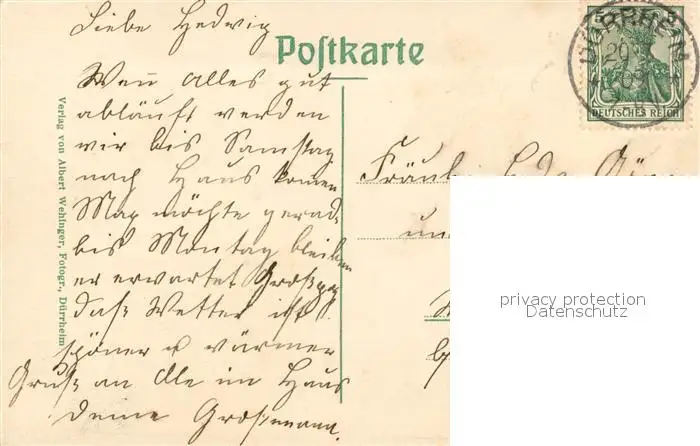 Liebe Hedwig
Postkarte
Wen alles gut
abläuft werden
wir bis Samstag
nach Haus komen
Max möchte gerad.
bis Montag bleiben
er erwartet
daß Wetter ist
schöner u wärmer
Gruß an Alle im Haus
deine Großmama.
Verlag von Albert Wehinger, Fotogr., Dürrheim
DÜRRHEIM
DEUTSCHES REICH
Fräulein
und
privacy protection
Datenschutz